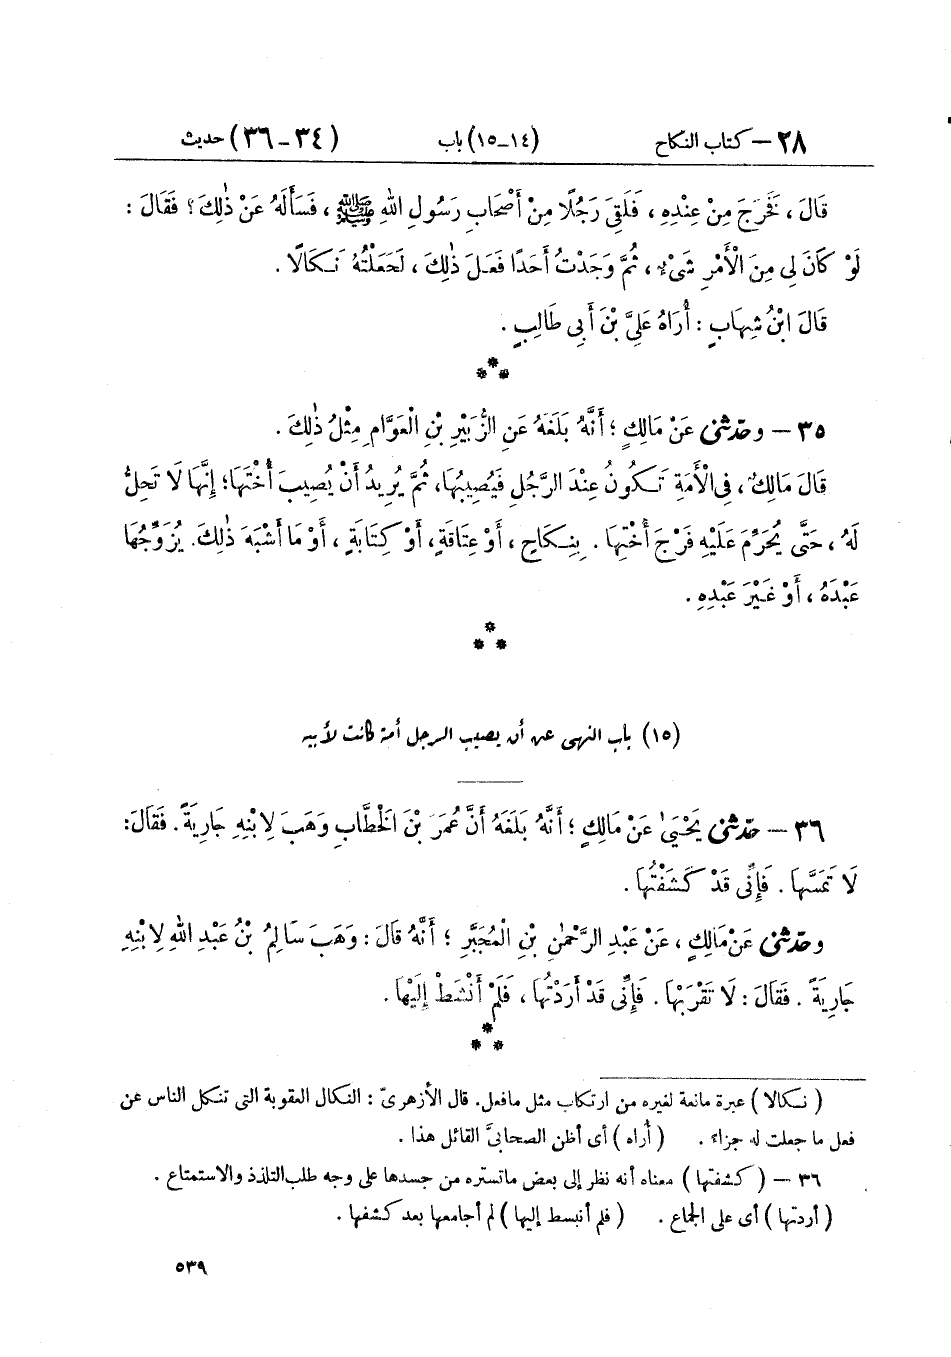 ٢٨ – كتاب النكاح (١٤-١٥) باب (٣٤-٣٦) حديث
قَالَ ، فَخَرَجَ مِنْ عِنْدِهِ ، فَلَقِىَ رَجُلًا مِنْ أَصْحَابِ رَسُولِ اللهِ ﷺ ، فَسَأَلَهُ عَنْ ذٰلِكَ ؟ فَقَالَ :
لَوْ كَانَ لِى مِنَ الْأَمْرِ شَىْءٌ ، ثُمَّ وَجَدْتُ أَحَدًا فَعَلَ ذٰلِكَ ، لَجَعَلْتُهُ نَكَالًا .
قَالَ ابْنُ شِهَابٍ : أُرَاهُ عَلِىَّ بْنَ أَبِى طَالِبٍ .
***
٣٥ – وحدّثنى عَنْ مَالِكٍ ؛ أَنَّهُ بَلَغَهُ عَنِ الزُّبَيْرِ بْنِ الْعَوَّامِ مِثْلُ ذٰلِكَ .
قَالَ مَالِكٌ ، فِى الْأَمَةِ تَكُونُ عِنْدَ الرَّجُلِ فَيُصِيبُهَا، ثُمَّ يُرِيدُ أَنْ يُصِيبَ أُخْتَهَا؛ إِنَّهَا لَا تَحِلُّ
لَهُ ، حَتَّى يُحَرِّمَ عَلَيْهِ فَرْجَ أُخْتِهَا . بِنِكَاحٍ ، أَوْ عِتَاقَةٍ، أَوْ كِتَابَةٍ ، أَوْ مَا أَشْبَهَ ذٰلِكَ. يُزَوِّجُهَا
عَبْدَهُ ، أَوْ غَيْرَ عَبْدِهِ .
***
(١٥) باب النهى عن أن يصيب الرجل أمة كانت لأبيه
٣٦ – حدّثنى يَحْيَىٰ عَنْ مَالِكٍ ؛ أَنَّهُ بَلَغَهُ أَنَّ عُمَرَ بْنَ الْخَطَّابِ وَهَبَ لِابْنِهِ جَارِيَةً . فَقَالَ:
لَا تَمَسَّهَا . فَإِنِّى قَدْ كَشَفْتُهَا .
وحدّثنى عَنْ مَالِكٍ ، عَنْ عَبْدِ الرَّحْمٰنِ بْنِ الْمُجَبَّرِ ؛ أَنَّهُ قَالَ : وَهَبَ سَالِمُ بْنُ عَبْدِ اللهِ لِابْنِهِ
جَارِيَةً . فَقَالَ : لَا تَقْرَبْهَا . فَإِنِّى قَدْ أَرَدْتُهَا ، فَلَمْ أَنْشَطْ إِلَيْهَا .
***
( نكالا ) عبرة مانعة لغيره من ارتكاب مثل مافعل. قال الأزهرىّ : النكال العقوبة التى تنكل الناس عن
فعل ما جعلت له جزاء . ( أُراه ) أى أظن الصحابىَّ القائل هذا .
٣٦ – ( كشفتها ) معناه أنه نظر إلى بعض ماتستره من جسدها على وجه طلب التلذذ والاستمتاع .
( أردتها ) أى على الجماع . ( فلم أنبسط إليها ) لم أجامعها بعد كشفها .
٥٣٩